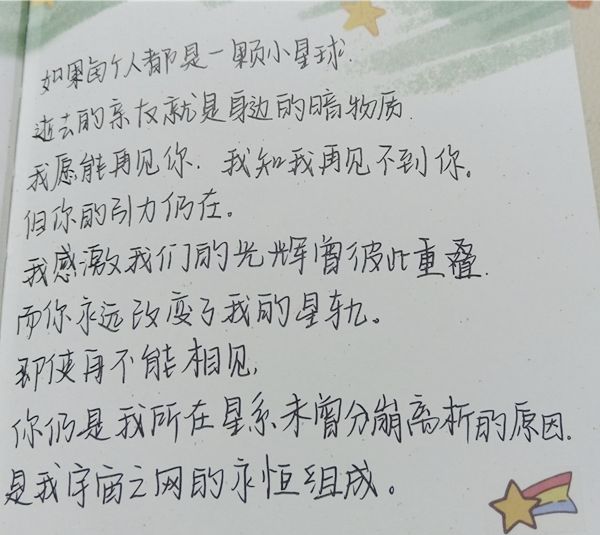 如果每个人都是一颗小星球.
逝去的亲友就是身边的暗物质.
我愿能再见你. 我知我再见不到你。
但你的引力仍在。
我感激我们的光辉曾彼此重叠.
而你永远改变了我的星轨。
即使再不能相见,
你仍是我所在星系未曾分崩离析的原因.
是我宇宙之网的永恒组成。